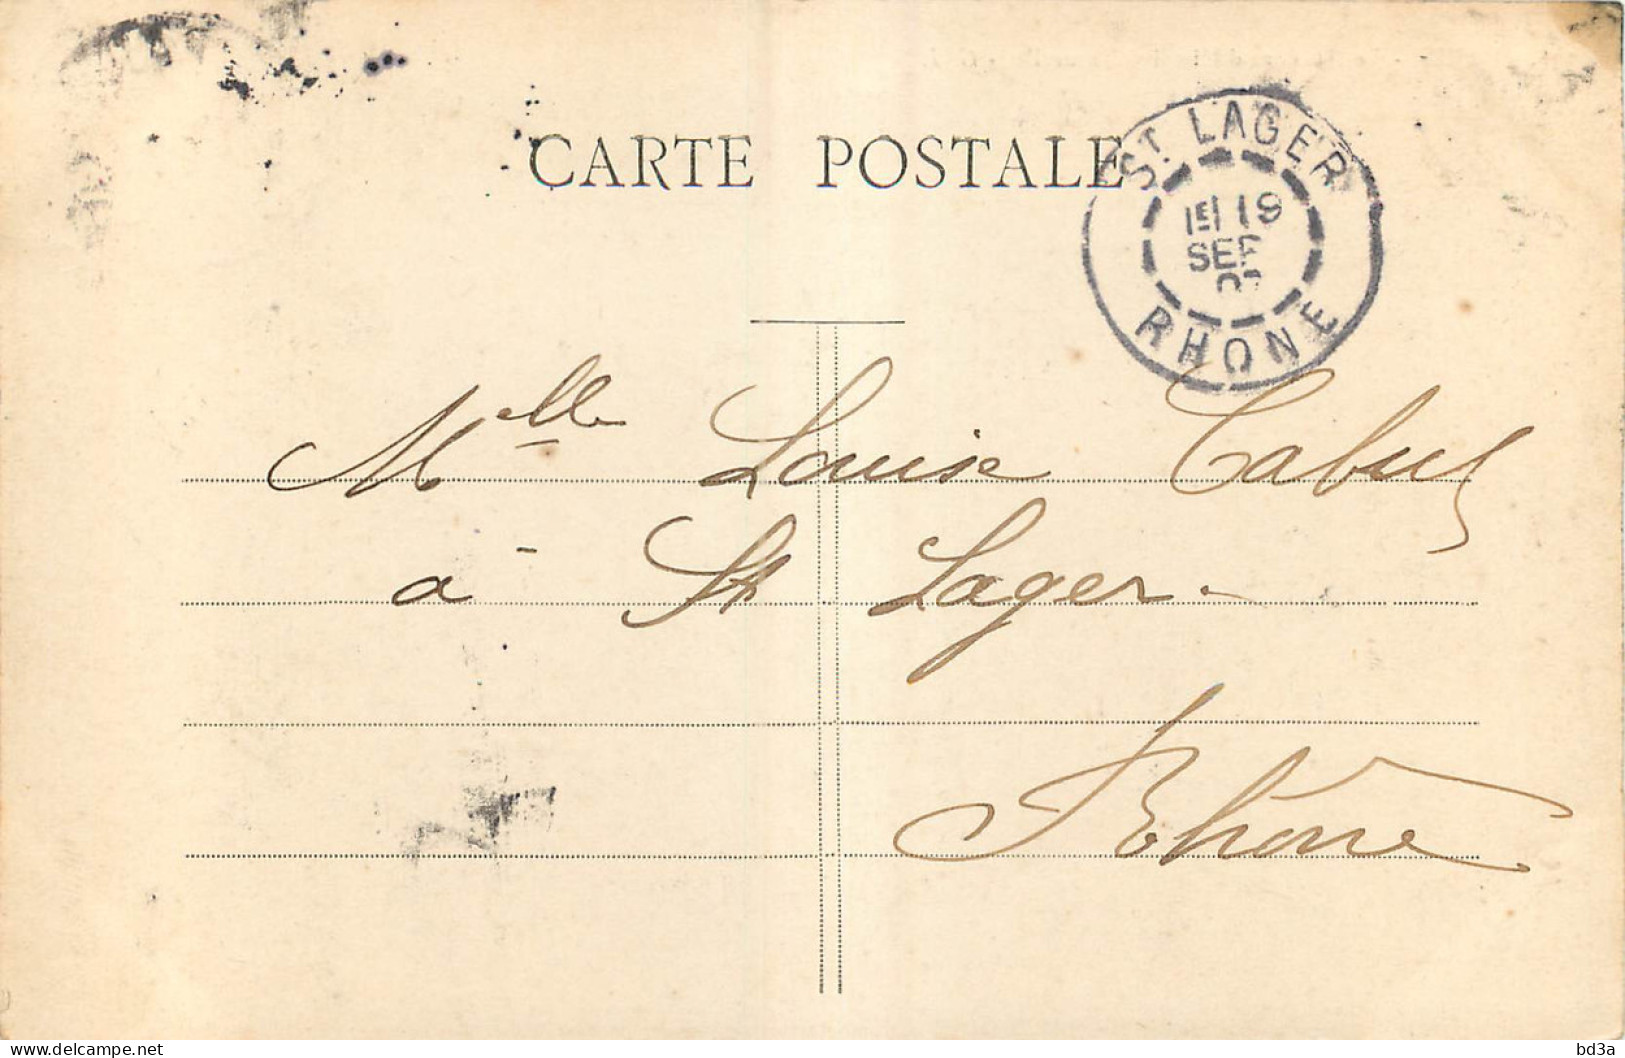 CARTE POSTALE
ST. LAGER
1E 19
SEP
RHONE
Mlle Louise
à St Lager.
Rhône
delcampe.net
bd3a